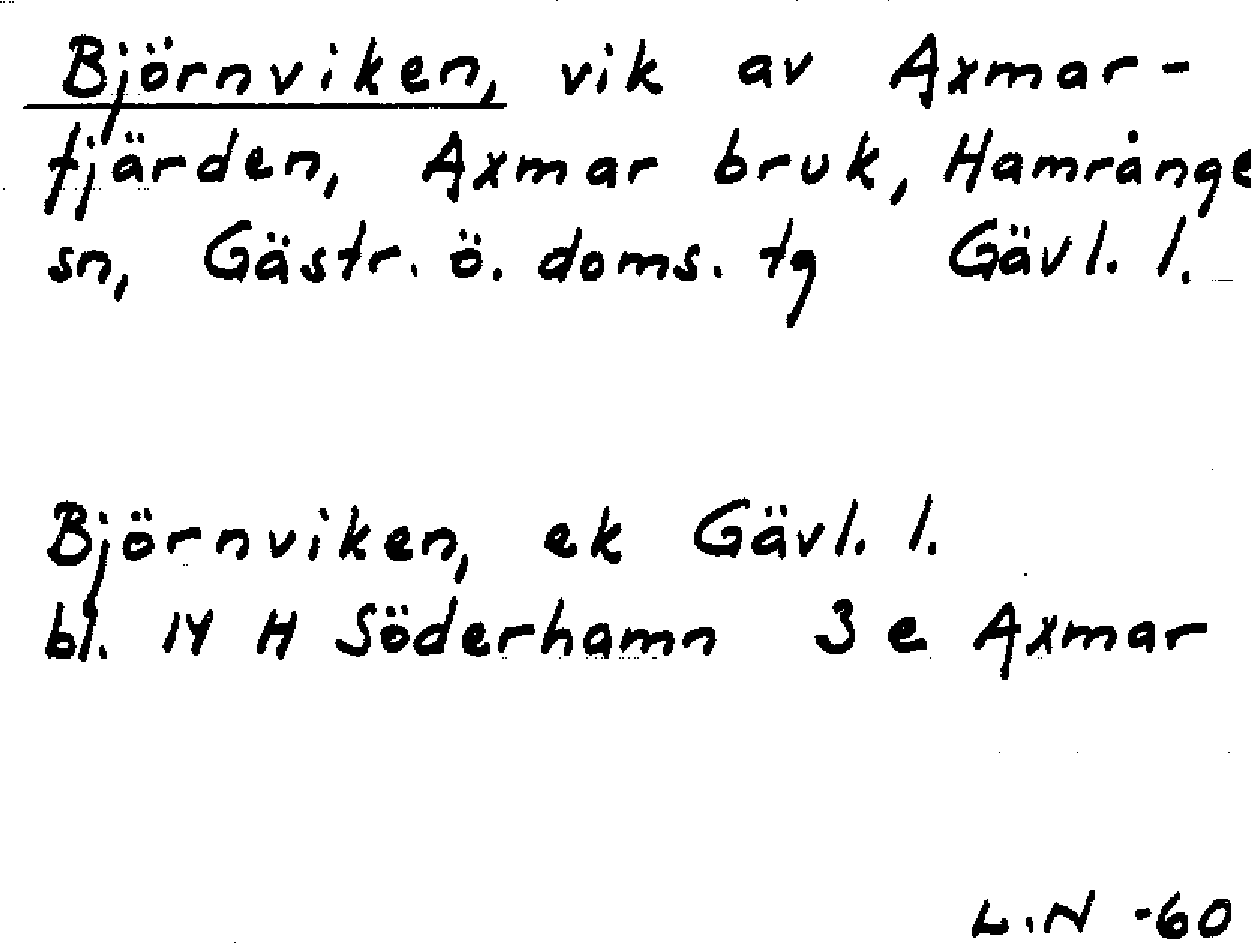 Björnviken, vik av Axmar-
fjärden, Axmar bruk, Hamrånge
sn, Gästr. ö. doms. tg Gävl. l.
Björnviken, ek Gävl. l.
bl. 14 H Söderhamn 3 e Axmar
L.N -60